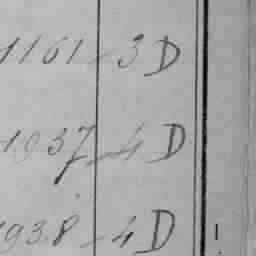 1161-3D
1937-4D
1938-4D